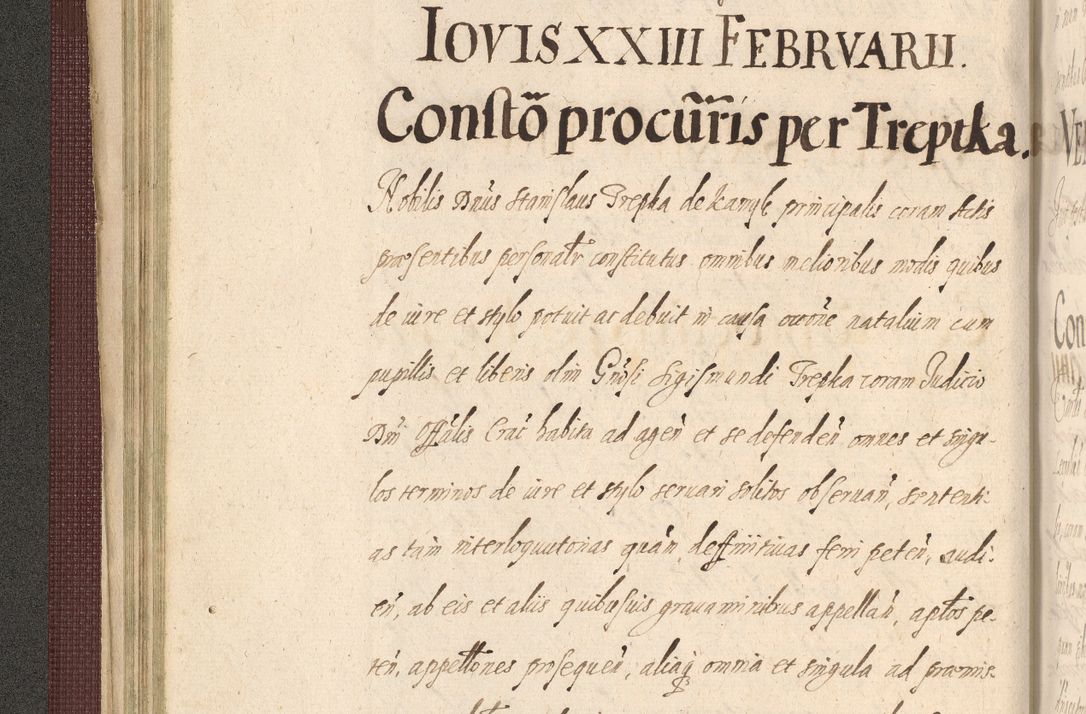 IOVIS XXIII FEBRVARII.
Constõ procur̃ris per Trepka.
Nobilis Dn̄us Stanislaus Trepka de principalis coram Actis
præsentibus personalr̃ constitutus omnibus melioribus modis quibus
de iure et stylo potuit ac debuit in causa natalium cum
pupillis et liberis olim Gn̄osi Sigismundi Trepka coram Judicio
Dn̄i Offālis Crac̄ habita ad agen̄ et se defenden̄ omnes et singu-
los terminos de iure et stylo servari solitos observan̄, sententi-
as tam interloquutorias quam deffinitivas ferri peten̄, audi-
en̄, ab eis et aliis quibusuis gravaminibus appellan̄, aptos pe-
ten̄, appelltones prosequen̄, aliaq omnia et singula ad præmis-